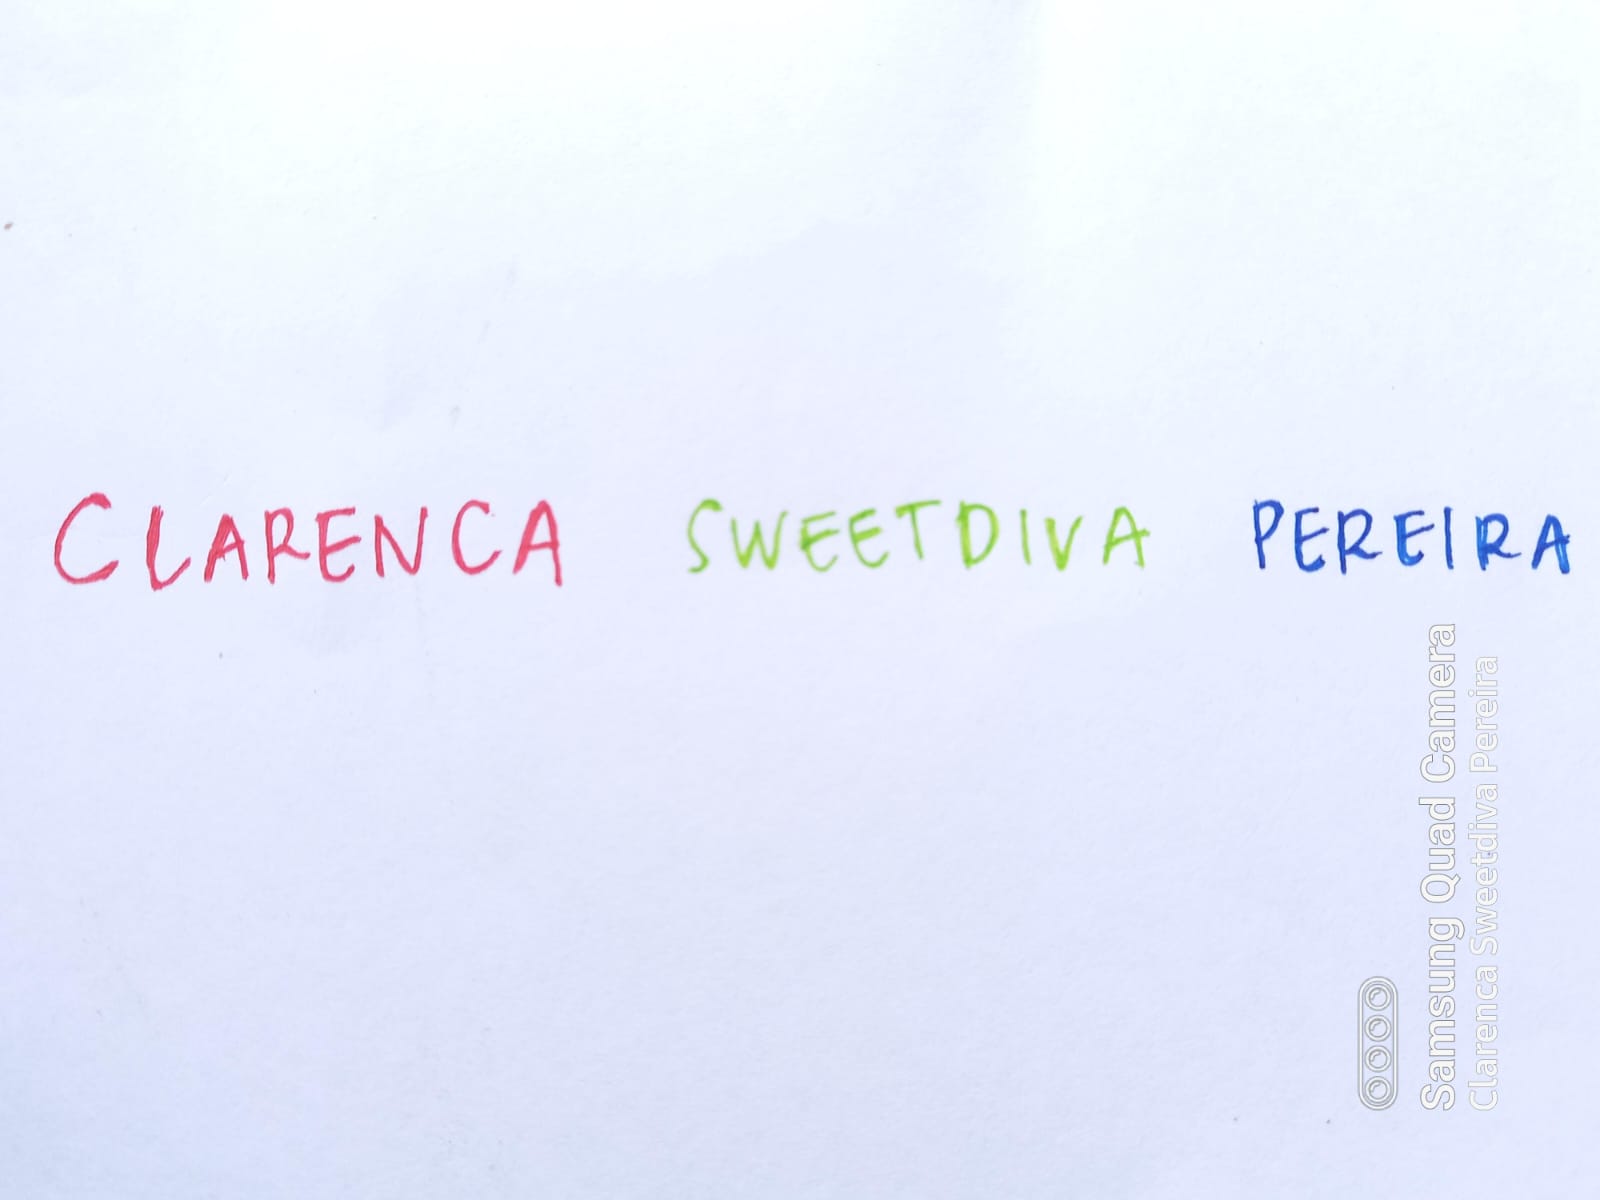 CLARENCA SWEETDIVA PEREIRA
Samsung Quad Camera
Clarenca Sweetdiva Pereira